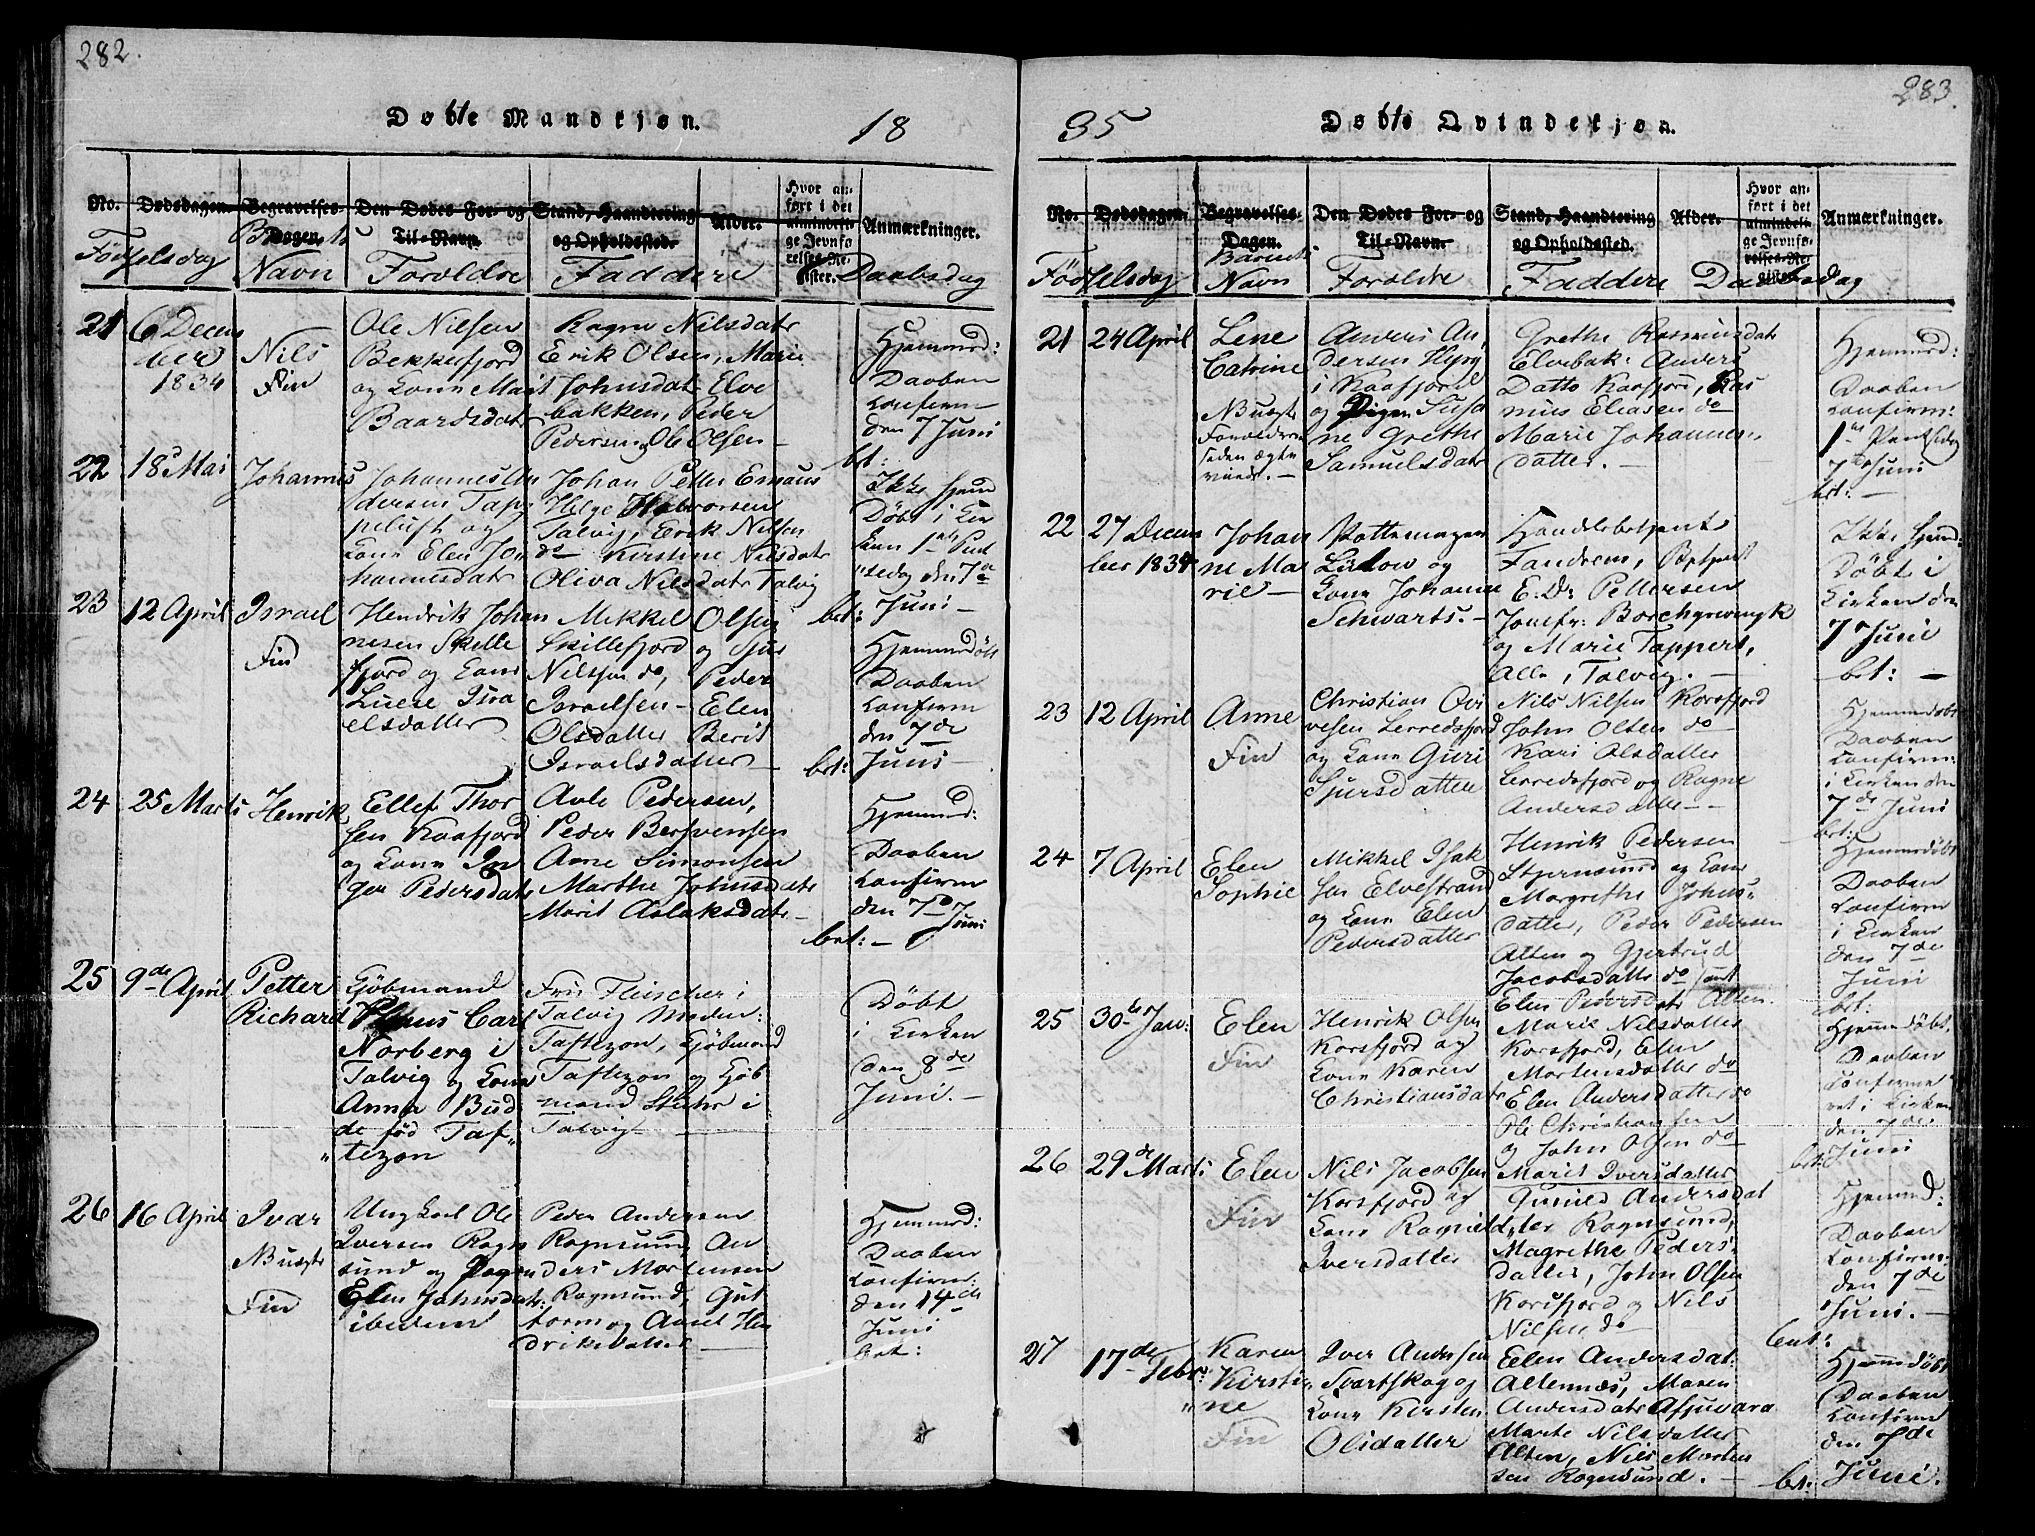 282.
Døbte Mandkjøn.
18
No.
Dødsdagen.
Begravelses-
Dagen.
Den Dødes For- og
Til-Navn.
Stand, Haandtering
og Opholdssted.
Alder.
Hvor an-
ført i det
almindeli-
ge Jevnfø-
relses-Re-
gister.
Anmærkninger.
Födselsdag
Barnets
Navn
Forældre
Faddere
Daabsdag
21
6 Decem
ber
1834
Nils
Fin
Ole Nilsen
Bekkefjord
og Kone Marit
Baardsdatr
Ragne Nilsdatr
Erik Olsen, Marie
Johnsdat Elve
bakken, Peder
Pedersen, Ole Olsen
Hjemmed:
Daaben
Confirm
den 7 Juni
bet:
22
18 Mai
Johannes
Johannes An
dersen Tap
peluft og
Kone Elen Jo
hannesdatr
Johan Petter Emaus
Helge Halvorsen
Talvig, Erik Nilsen
do Kirstine Nilsdatr
Oliva Nilsdatr Talvig
Ikke hjem
Döbt i Kir
ken 1ste Pint
sedag den 7de
Juni
bet:
23
12 April
Israel
Fin
Hendrik Johan
nesen Skille
fjord og Kone
Lucie Isra
elsdatter
Mikkel Olsen
Skillefjord og
Nilsen do, Peder
Israelsen Elen
Olsdatter Berit
Israelsdatter
Hjemmedöbt
Daaben
Confirm
den 7de
Juni
bet:
24
25 Marts
Henrik
Ellef Thor
sen Kaafjord
og Kone In
ger Pedersdatr
Avle Pedersen,
Peder Bersvensen
Arne Simonsen
Marthe Johnsdatr
Marit Aslaksdatr
Hjemmed:
Daaben
Confirm
den 7de
Juni
bet:
25
9de April
Petter
Richard
Gjöbmand
Carl
Norberg i
Talvig og Kone
Anna Bud
de föd Taf
tezon
Fru Fleischer i
Talvig Madm:
Taftezon, Gjöbmand
Taftezon og Gjöb
mand Stuhr i
Talvig
Döbt
i Kirken
den 8de
Juni.
26
16 April
Ivar
Buægte
Fin
Ungkarl Ole
Iversen Rogn
sund og Pigen
Elen Johnsdatr:
ibidem
Peder Andersen
Rognsund, An
ders Mortensen
Rognsund, Gut
torm og Anne Hen
driksdatter
Hjemmed:
Daaben
Confirm:
den 14de
Juni
bet:
283.
35
Døbte Qvindekjøn.
No.
Dødsdagen.
Begravelses-
Dagen.
Den Dødes For- og
Til-Navn.
Stand, Haandtering
og Opholdssted.
Alder.
Hvor an-
ført i det
almindeli-
ge Jevnfø-
relses-Re-
gister.
Anmærkninger.
Födselsdag
Barnets
Navn
Forældre
Faddere
Daabsdag
21
24 April
Lene
Catrine
Buægte
Forældrene
siden ægte
viede.
Anders An
dersen Hyry
i Kaafjord
og Pigen Susa
ne Grethe
Samuelsdatr
Grethe Rasmusdatr
Elvebak: Anders
Datto Kaafjord, Ras
mus Eliasen do
Marie Johannes
datter.
Hjemmed:
Daaben
Confirm:
1ste Pintsedag
7de Juni
bet:
22
27 Decem
ber 1834
Johan
ne Ma
rie
Pottemager
Lutow og
Kone Johanne
Schwarts.
Handelsbetjent
Fandrem, Betjent
E. Dr Pettersen
Jomfr: Borchgrewingk
og Marie Tappert,
Alle i Talvig.
Ikke hjemd:
Döbt i
Kirken den
7 Juni
bet:
23
12 April
Anne
Fin
Christian Ovi
vesen Lerredsfjord
og Kone Guri
Sjursdatter
Nils Nilsen Korsfjord
John Olsen do
Kari Olsdatter
Lerredsfjord og Ragne
Andersdatter
Hjemmedöbt
Daaben
Confirm:
i Kirken den
7de Juni
bet:
24
7 April
Elen
Sophie
Mikkel Isak
sen Elvestrand
og Kone Elen
Pedersdatter
Henrik Pedersen
Stjernsund og Kone
Margrethe Johns
datter, Peder Pedersen
Alten og Gjertrud
Jacobsdatter do samt
Elen Pedersdatr Alten.
Hjemmedöbt
Daaben
Confirm
i Kirken
den 7de
Juni
bet:
25
30te Jan:
Elen
Fin
Henrik Olsen
Korsfjord og
Kone Karen
Christiansdatr
Marie Nilsdatter
Korsfjord, Elen
Mortensdatter do
Elen Andersdatter do
Ole Christiansen
og John Olsen do
Hjemmedöbt.
Daaben
Confirme
ret i Kirken
den 7de
Juni
bet:
26
29de Marts
Elen
Fin
Nils Jacobsen
Korsfjord og
Kone Ragnild
Iversdatter
Marit Iversdatter
Gunild Andersdat
ter Rognsund,
Magrethe Peders
datter, John Olsen
Korsfjord og Nils
Nilsen do
Hjemmed:
Daaben
Confirm:
den 7de
Juni.
bet:
27
17de Febr:
Karen
Kirsti
ne
Fin
Iver Andersen
Svartskog og
Kone Kirsten
Olsdatter
Elen Andersdat:
Altennæs, Maren
Andersdatr Afjuvara
Marte Nilsdatter
Alten, Nils Morten
sen Rognsund.
Hjemmedöbt
Daaben
Confirm
den 7de
Juni.
bet: